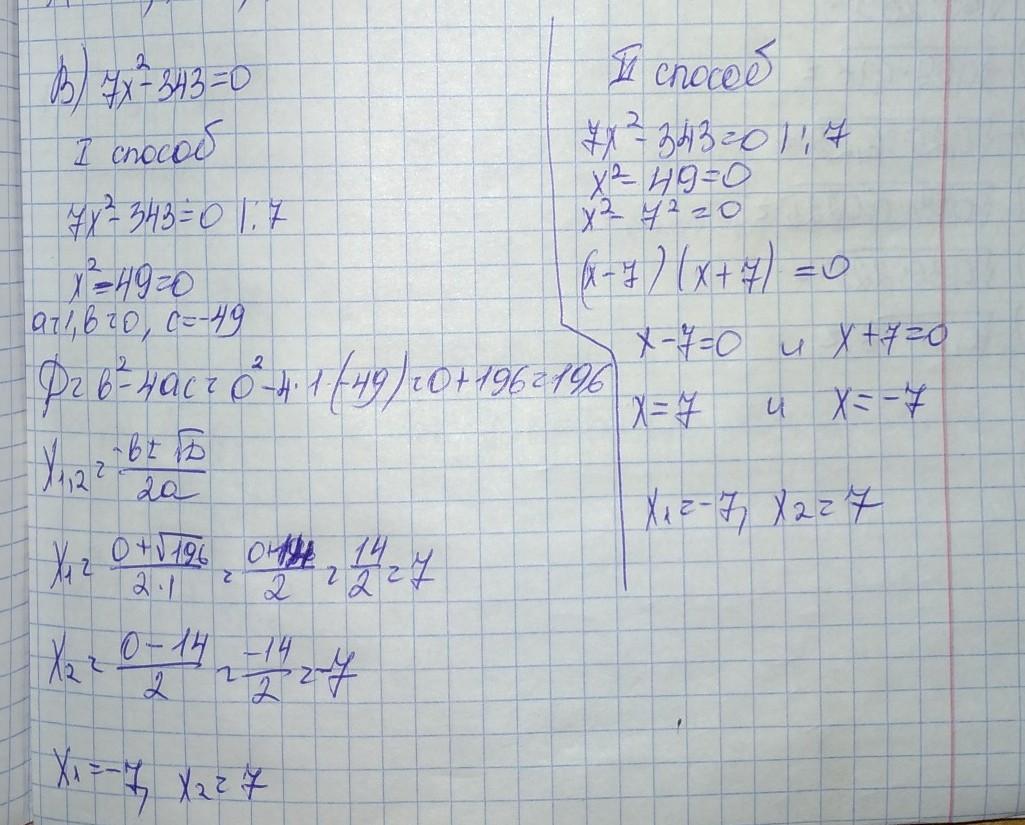 В) 7x²-343=0
I способ
7x²-343=0 |:7
x²-49=0
a=1, b=0, c=-49
D=b²-4ac=0²-4·1·(-49)=0+196=196
x₁,₂=(-b±√D)/2a
x₁=(0+√196)/(2·1)=(0+14)/2=14/2=7
x₂=(0-14)/2=-14/2=-7
x₁=-7, x₂=7
II способ
7x²-343=0 |:7
x²-49=0
x²-7²=0
(x-7)(x+7)=0
x-7=0 и x+7=0
x=7 и x=-7
x₁=-7, x₂=7